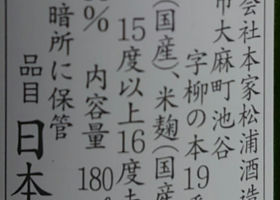 会社本家松浦酒造
市大麻町池谷
字柳の本19
(国産)、米麹(国産
15度以上16度
%　内容量　180
暗所に保管
品目　日本